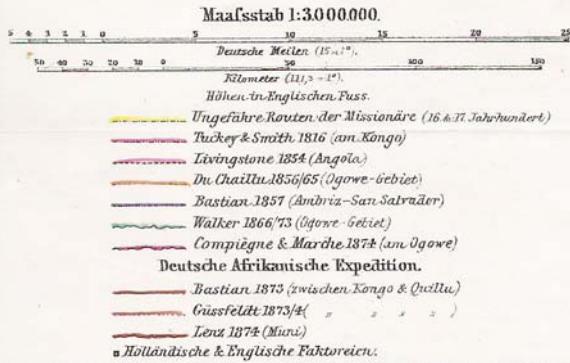 Maafsstab 1:3.000000.
5 4 3 2 1 0 5 10 15 20 25
Deutsche Meilen (15=1°).
50 40 30 20 10 0 50 100 150
Kilometer (111,3=1°).
Höhen in Englischen Fuss.
Ungefähre Routen der Missionäre (16. & 17. Jahrhundert)
Tuckey & Smith 1816 (am Kongo)
Livingstone 1854 (Angola)
Du Chaillu 1856/65 (Ogowe-Gebiet)
Bastian 1857 (Ambriz-San Salvador)
Walker 1866/73 (Ogowe-Gebiet)
Compiègne & Marche 1874 (am Ogowe)
Deutsche Afrikanische Expedition.
Bastian 1873 (zwischen Kongo & Quillu)
Güssfeldt 1873/4 ( " " " " )
Lenz 1874 (Muni)
Holländische & Englische Faktoreien.